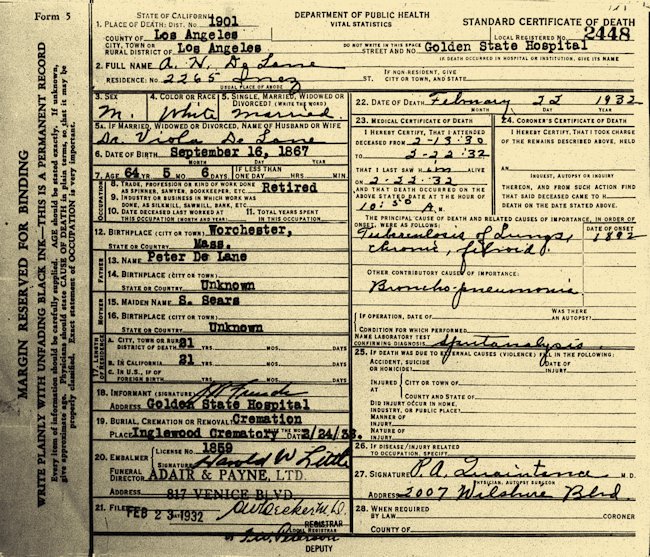 Form 5
STATE OF CALIFORNIA
DEPARTMENT OF PUBLIC HEALTH
VITAL STATISTICS
STANDARD CERTIFICATE OF DEATH
1. PLACE OF DEATH: DIST. NO. 1901
LOCAL REGISTERED NO. 2448
COUNTY OF Los Angeles
CITY, TOWN OR
RURAL DISTRICT OF Los Angeles
DO NOT WRITE IN THIS SPACE
STREET AND NO. Golden State Hospital
IF DEATH OCCURRED IN HOSPITAL OR INSTITUTION, GIVE ITS NAME
2. FULL NAME A. N. De Lane
RESIDENCE: NO. 2265 Inez ST.
IF NON-RESIDENT, GIVE
CITY, TOWN, AND STATE
USUAL PLACE OF ABODE
3. SEX M.
4. COLOR OR RACE White
5. SINGLE, MARRIED, WIDOWED OR
DIVORCED? (WRITE THE WORD) Married.
5A. IF MARRIED, WIDOWED OR DIVORCED, NAME OF HUSBAND OR WIFE
Dr. Viola De Lane
6. DATE OF BIRTH September 16, 1867
MONTH DAY YEAR
7. AGE 64 YR. 5 MOS. 6 DAYS
IF LESS THAN
ONE DAY HRS. MIN.
OCCUPATION
8. TRADE, PROFESSION OR KIND OF WORK DONE
AS SPINNER, SAWYER, BOOKKEEPER, ETC. Retired
9. INDUSTRY OR BUSINESS IN WHICH WORK WAS
DONE, AS SILKMILL, SAWMILL, BANK, ETC
10. DATE DECEASED LAST WORKED AT
THIS OCCUPATION (MONTH AND YEAR)
11. TOTAL YEARS SPENT
IN THIS OCCUPATION
12. BIRTHPLACE (CITY OR TOWN) Worchester,
STATE OR COUNTRY Mass.
FATHER
13. NAME Peter De Lane
14. BIRTHPLACE (CITY OR TOWN)
STATE OR COUNTRY Unknown
MOTHER
15. MAIDEN NAME S. Sears
16. BIRTHPLACE (CITY OR TOWN)
STATE OR COUNTRY Unknown
17. LENGTH OF RESIDENCE
A. CITY, TOWN OR RURAL
DISTRICT OF DEATH 21 YRS. MOS. DAYS
B. IN CALIFORNIA 21 YRS. MOS. DAYS
C. IN U.S., IF OF
FOREIGN BIRTH YRS. MOS. DAYS
18. INFORMANT (SIGNATURE)
ADDRESS Golden State Hospital
19. BURIAL, CREMATION OR REMOVAL? Cremation
PLACE Inglewood Crematory DATE 2/24/32.
20. EMBALMER LICENSE NO. 1859
SIGNATURE Harold W Little
FUNERAL DIRECTOR ADAIR & PAYNE, LTD.
ADDRESS 817 VENICE BLVD.
21. FILED FEB 23 1932
REGISTRAR
DEPUTY
22. DATE OF DEATH February 22 1932
MONTH DAY YEAR
23. MEDICAL CERTIFICATE OF DEATH
I HEREBY CERTIFY, THAT I ATTENDED
DECEASED FROM 2-13-30
TO 2-22-32
THAT I LAST SAW HIM ALIVE
ON 2-22-32
AND THAT DEATH OCCURRED ON THE ABOVE
STATED DATE AT THE HOUR OF
10:50 A. M.
24. CORONER'S CERTIFICATE OF DEATH
I HEREBY CERTIFY, THAT I TOOK CHARGE
OF THE REMAINS DESCRIBED ABOVE, HELD
AN
INQUEST, AUTOPSY OR INQUIRY
THEREON, AND FROM SUCH ACTION FIND
THAT SAID DECEASED CAME TO H
DEATH ON THE DATE STATED ABOVE.
THE PRINCIPAL CAUSE OF DEATH AND RELATED CAUSES OF IMPORTANCE, IN ORDER OF
ONSET, WERE AS FOLLOWS:
DATE OF ONSET
Tuberculosis of Lungs, 1892
chronic, fibroid.
OTHER CONTRIBUTORY CAUSES OF IMPORTANCE:
Broncho-pneumonia
IF OPERATION, DATE OF
WAS THERE
AN AUTOPSY?
CONDITION FOR WHICH PERFORMED
NAME LABORATORY TEST
CONFIRMING DIAGNOSIS
25. IF DEATH WAS DUE TO EXTERNAL CAUSES (VIOLENCE) FILL IN THE FOLLOWING:
ACCIDENT, SUICIDE
OR HOMICIDE?
DATE OF
INJURY
INJURED AT CITY OR TOWN OF
COUNTY AND STATE OF
DID INJURY OCCUR IN HOME,
INDUSTRY, OR PUBLIC PLACE?
MANNER OF
INJURY
NATURE OF
INJURY
26. IF DISEASE/INJURY RELATED
TO OCCUPATION, SPECIFY.
27. SIGNATURE P. A. Quaintance M.D.
PHYSICIAN, AUTOPSY SURGEON
ADDRESS 2007 Wilshire Blvd.
28. WHEN REQUIRED
BY LAW CORONER
COUNTY OF
MARGIN RESERVED FOR BINDING
WRITE PLAINLY WITH UNFADING BLACK INK—THIS IS A PERMANENT RECORD
Every item of information should be carefully supplied. AGE should be stated exactly. If unknown,
give approximate age. Physicians should state CAUSE OF DEATH in plain terms, so that it may be
properly classified. Exact statement of OCCUPATION is very important.